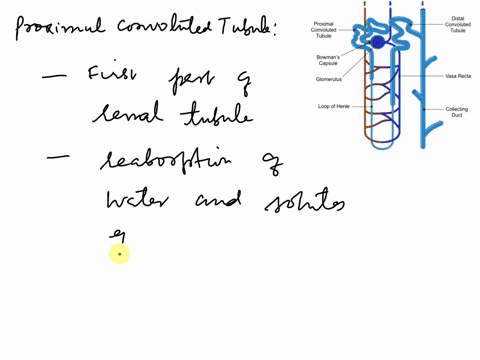 Proximal Convoluted Tubule:
— First part of
renal tubule
— reabsorption of
water and solutes
Proximal
Convoluted
Tubule
Bowman's
Capsule
Glomerulus
Loop of Henle
Distal
Convoluted
Tubule
Vasa Recta
Collecting
Duct